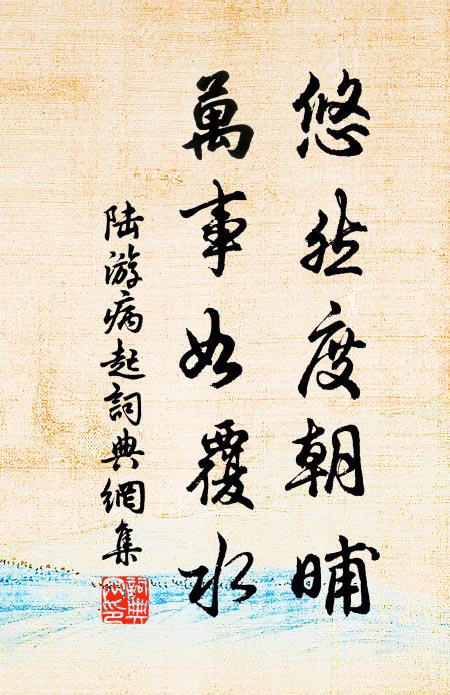 悠然度朝晡
萬事如覆水
陆游病起詞典網集